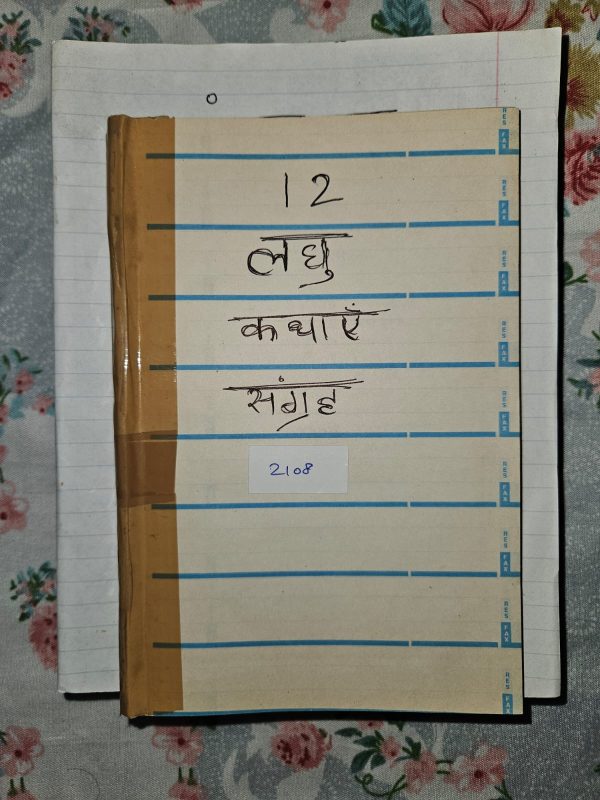 RES
FAX
12
RES
FAX
लघु
RES
FAX
कथाएँ
RES
FAX
संग्रह
RES
FAX
2108
RES
FAX
RES
FAX
RES
FAX
RES
FAX